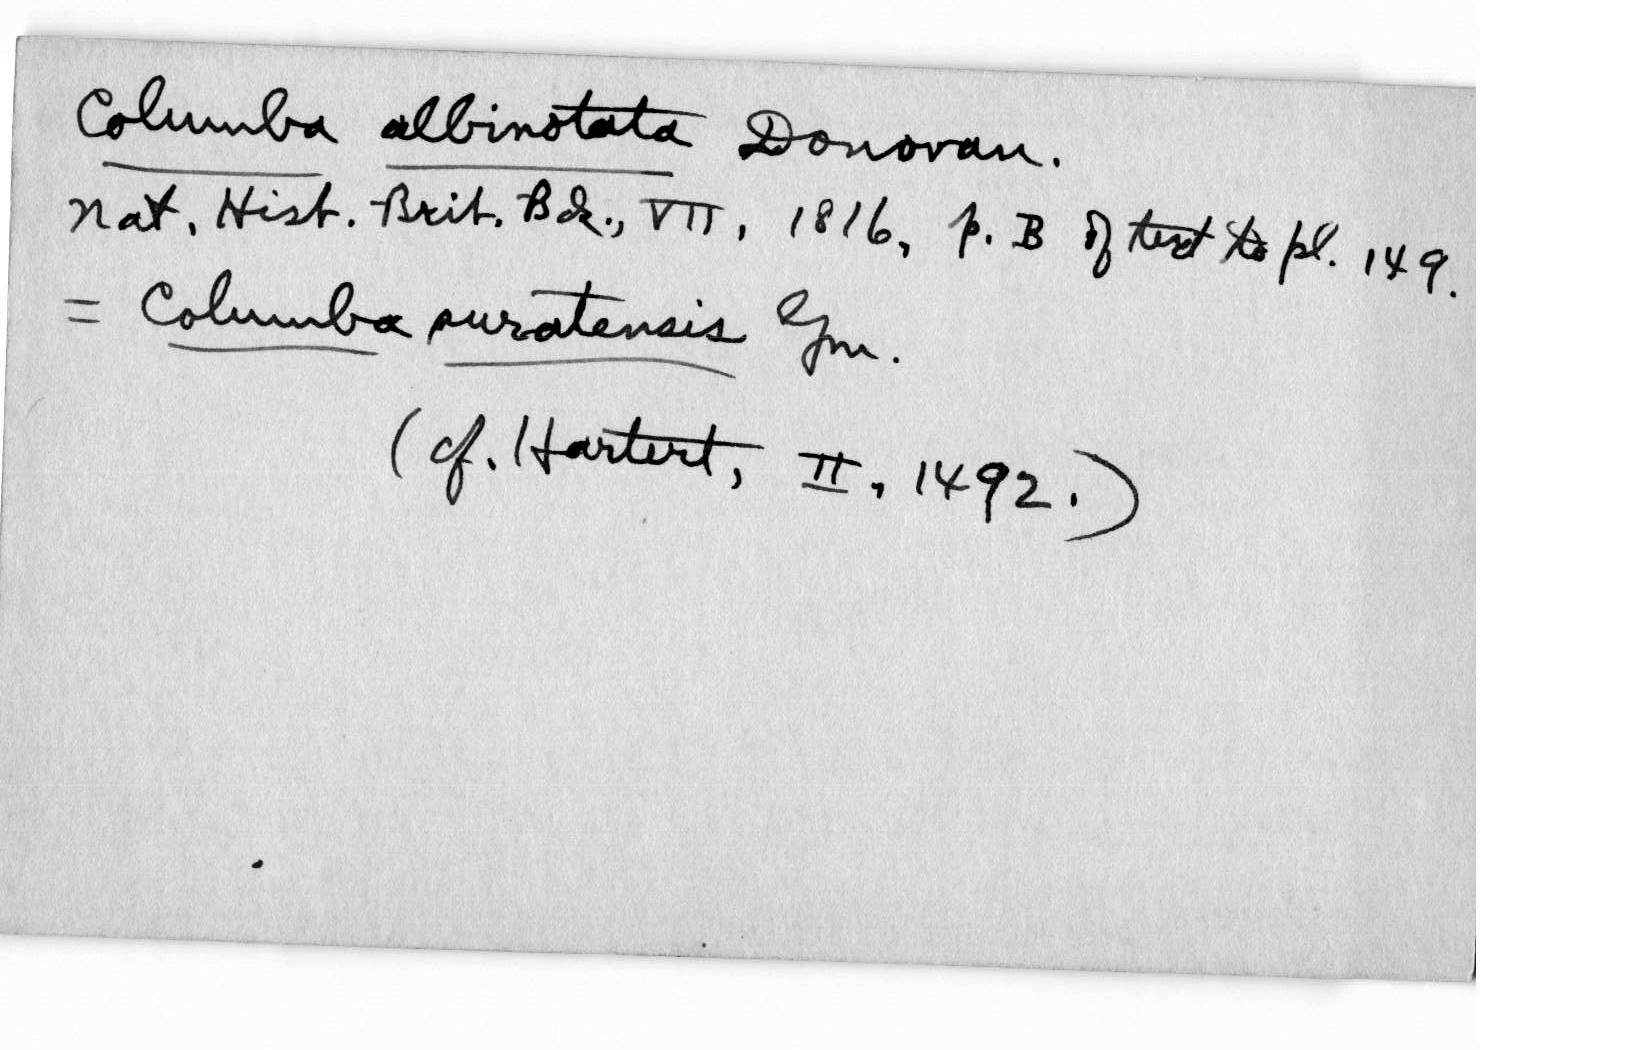 Columba albinotata Donovan.
Nat. Hist. Brit. Bds., VII, 1816, p. B of text to pl. 149.
= Columba suratensis Gm.
(cf. Hartert, II, 1492.)